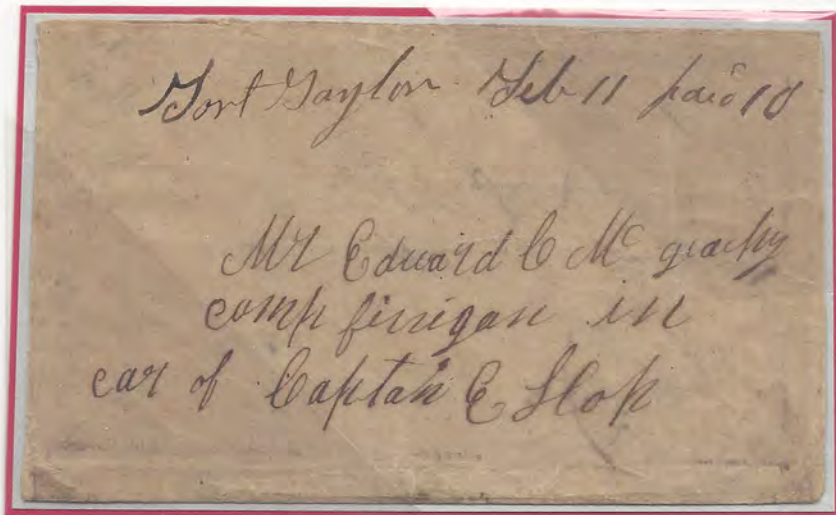 Fort Gaylor Feb 11 paid 10
Mr Edward C Mc geachy
comp finigan in
car of Captain E